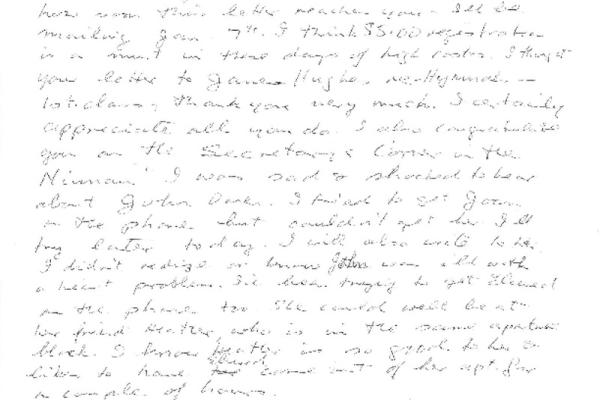 how soon this letter reaches you. I'll be
mailing Jan. 7th. I think $5.00 registration
is a must in these days of high costs. I thought
your letter to James Hughes re. Hymnal —
1st class; thank you very much. I certainly
appreciate all you do. I also congratulate
you on the Secretary's Corner in the
I was sad & shocked to hear
about John. I tried to get
on the phone but couldn't get her. I'll
try later today. I will also write to her.
I didn't realize or know John was ill with
a heart problem. I've been trying to get
on the phone too. She could well be at
her friend who is in the same apartment
block. I know is so good to her &
likes to have come out of her apt. for
a couple of hours.